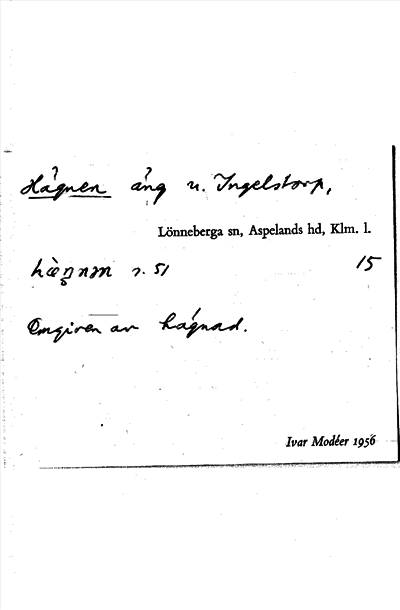 Hägnen äng u. Ingelstorp,
Lönneberga sn, Aspelands hd, Klm. l.
hæ̀ŋnən s. 51 15
Omgiven av hägnad.
Ivar Modéer 1956